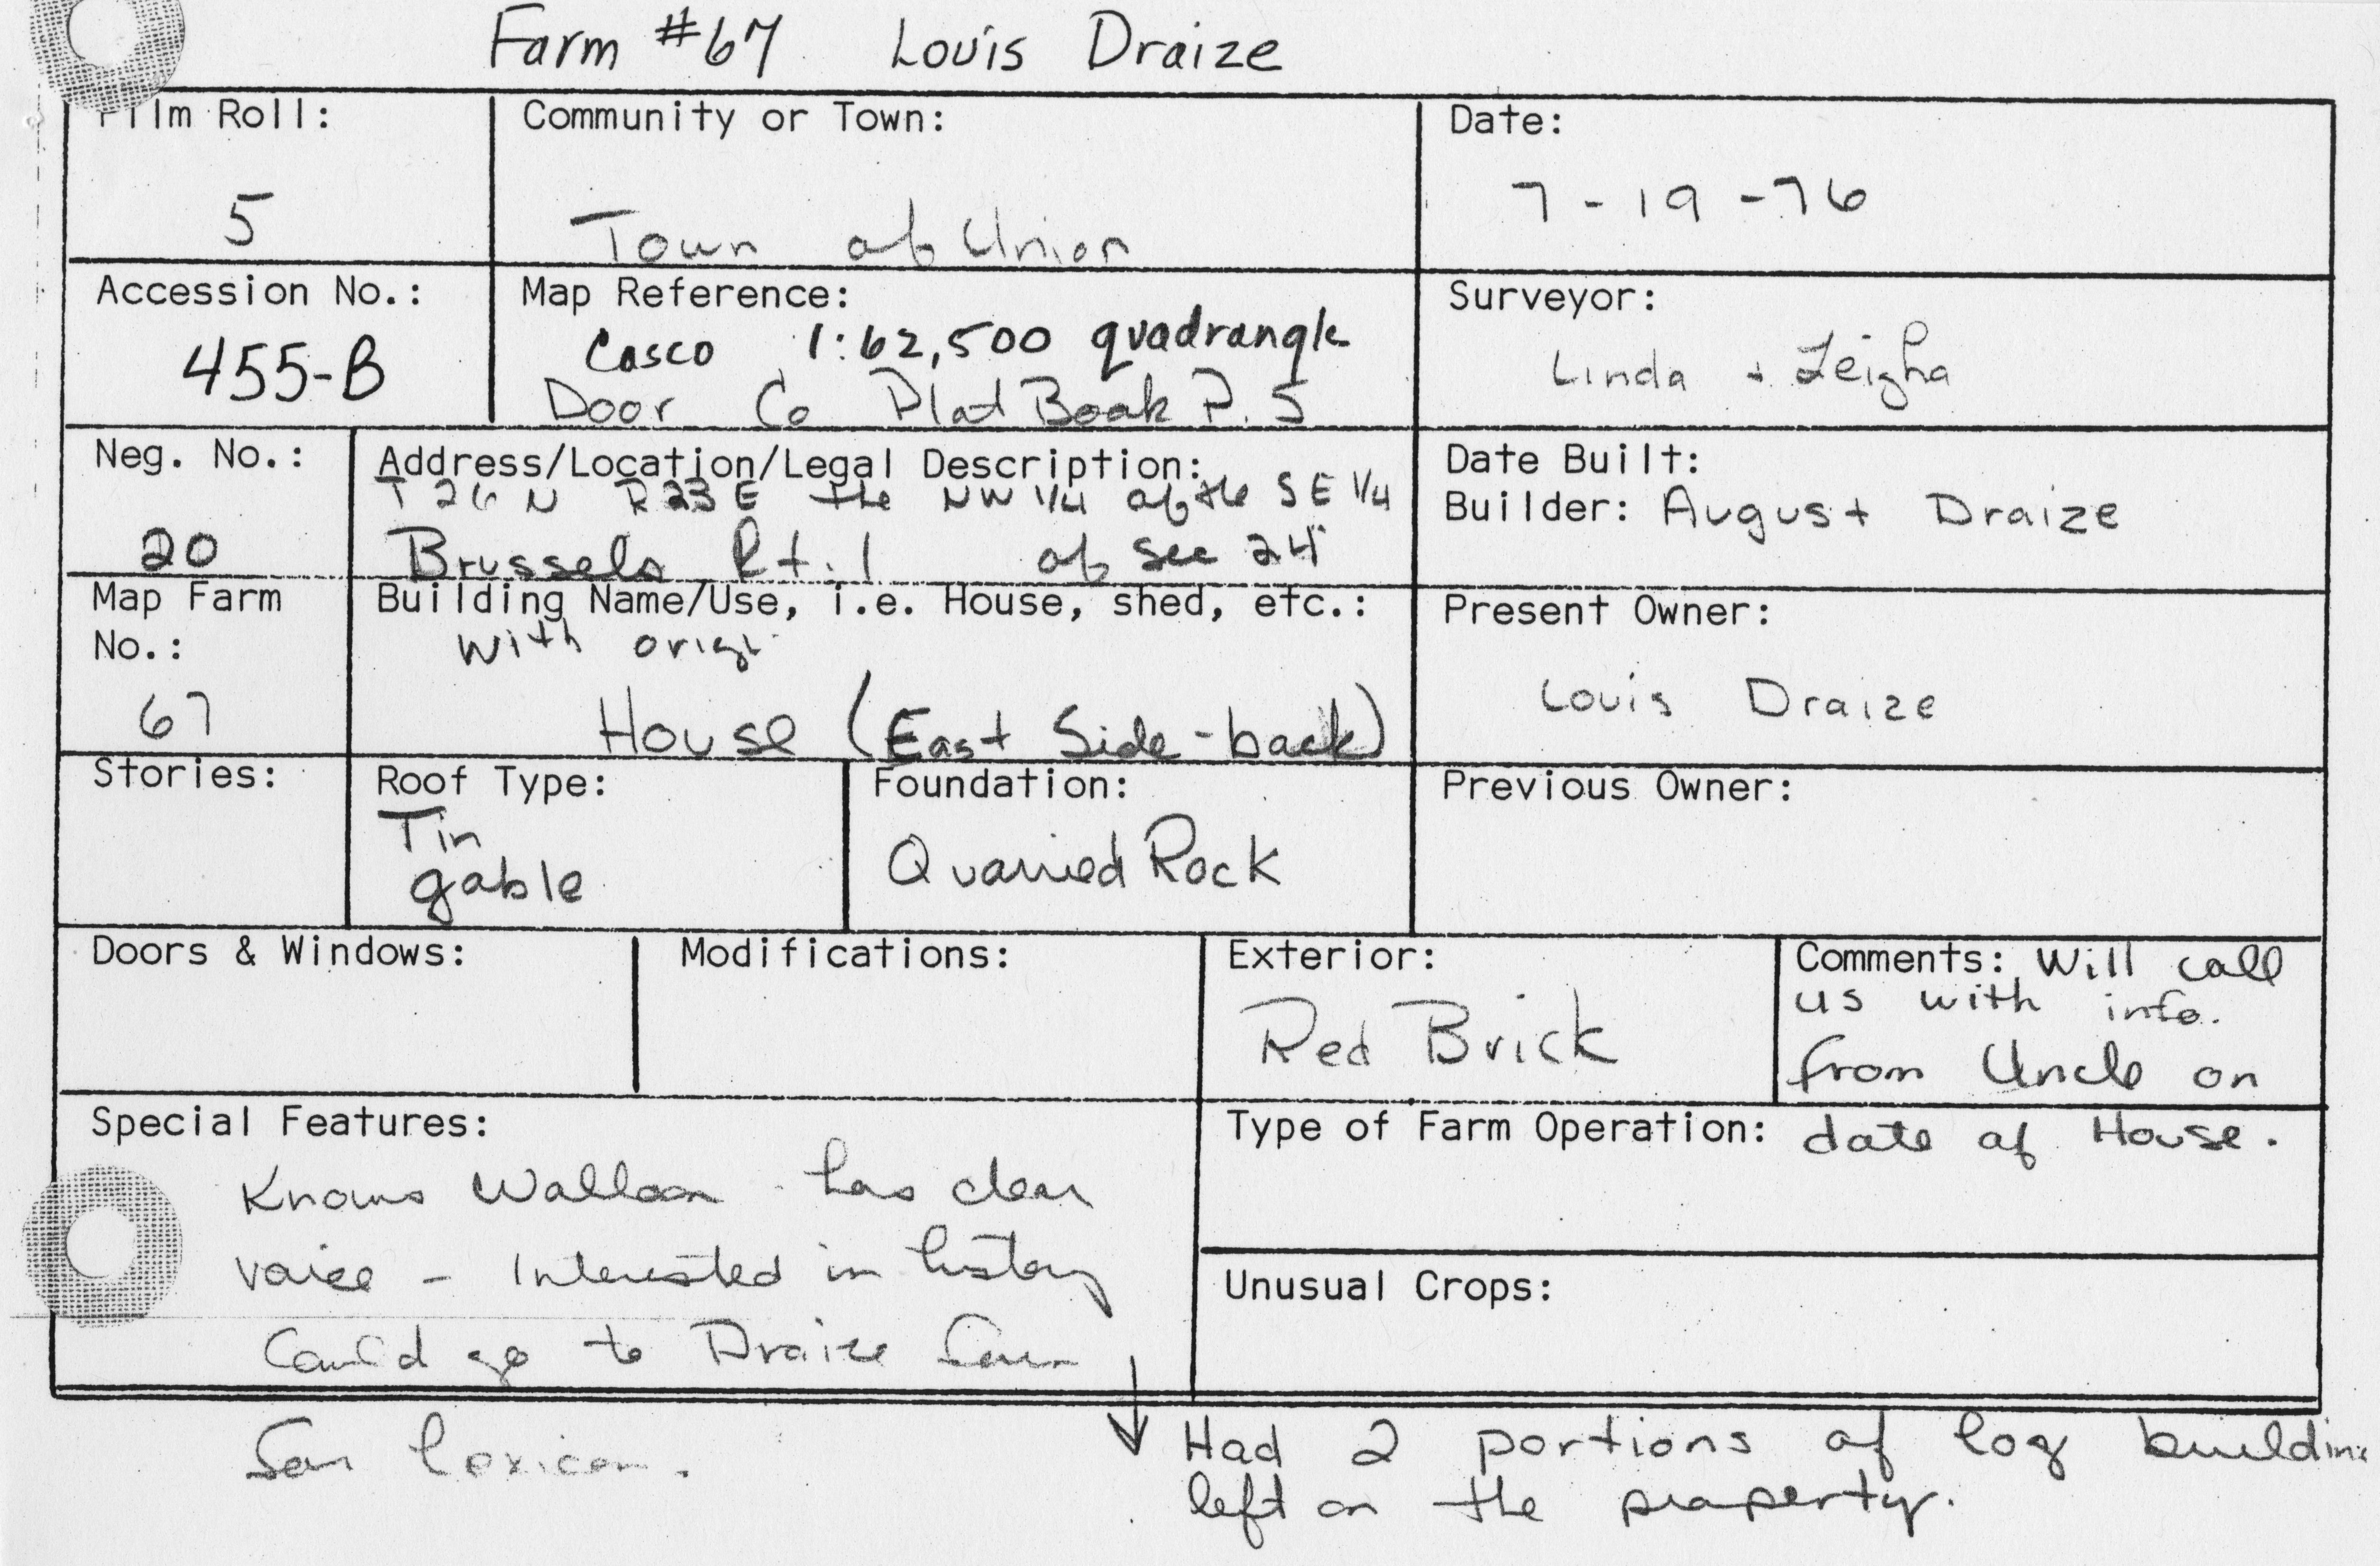 Farm #67 Louis Draize
Film Roll:
5
Community or Town:
Town of Union
Date:
7-19-76
Accession No.:
455-B
Map Reference:
Casco 1:62,500 quadrangle
Door Co Plat Book P. 5
Surveyor:
Linda + Leigha
Neg. No.:
20
Address/Location/Legal Description:
T 26 N R23 E the NW 1/4 of the SE 1/4
Brussels Rt. 1 of Sec 24
Date Built:
Builder: August Draize
Map Farm
No.:
67
Building Name/Use, i.e. House, shed, etc.:
with origi
House (East Side-back)
Present Owner:
Louis Draize
Stories:
Roof Type:
Tin
gable
Foundation:
Quarried Rock
Previous Owner:
Doors & Windows:
Modifications:
Exterior:
Red Brick
Comments: Will call
us with info.
from Uncle on
date of House.
Special Features:
Knows Walloon - has clear
voice - Interested in history
Could go to Draize Farm
for lexicon.
Type of Farm Operation:
Unusual Crops:
Had 2 portions of log building
left on the property.